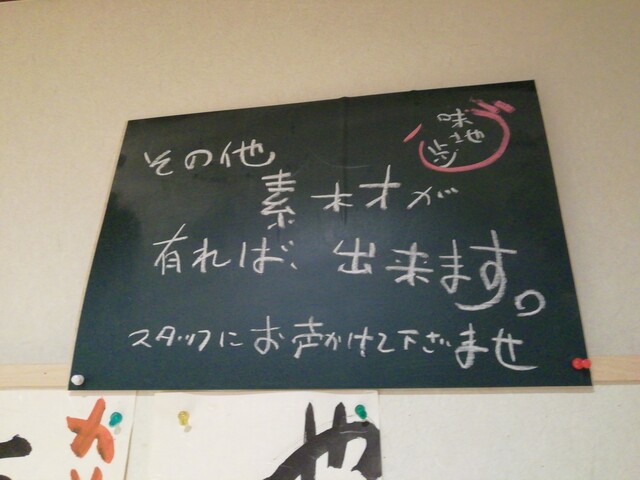 味地歩
その他
素材が
有れば、出来ます。
スタッフにお声かけて下ざいませ
か
や